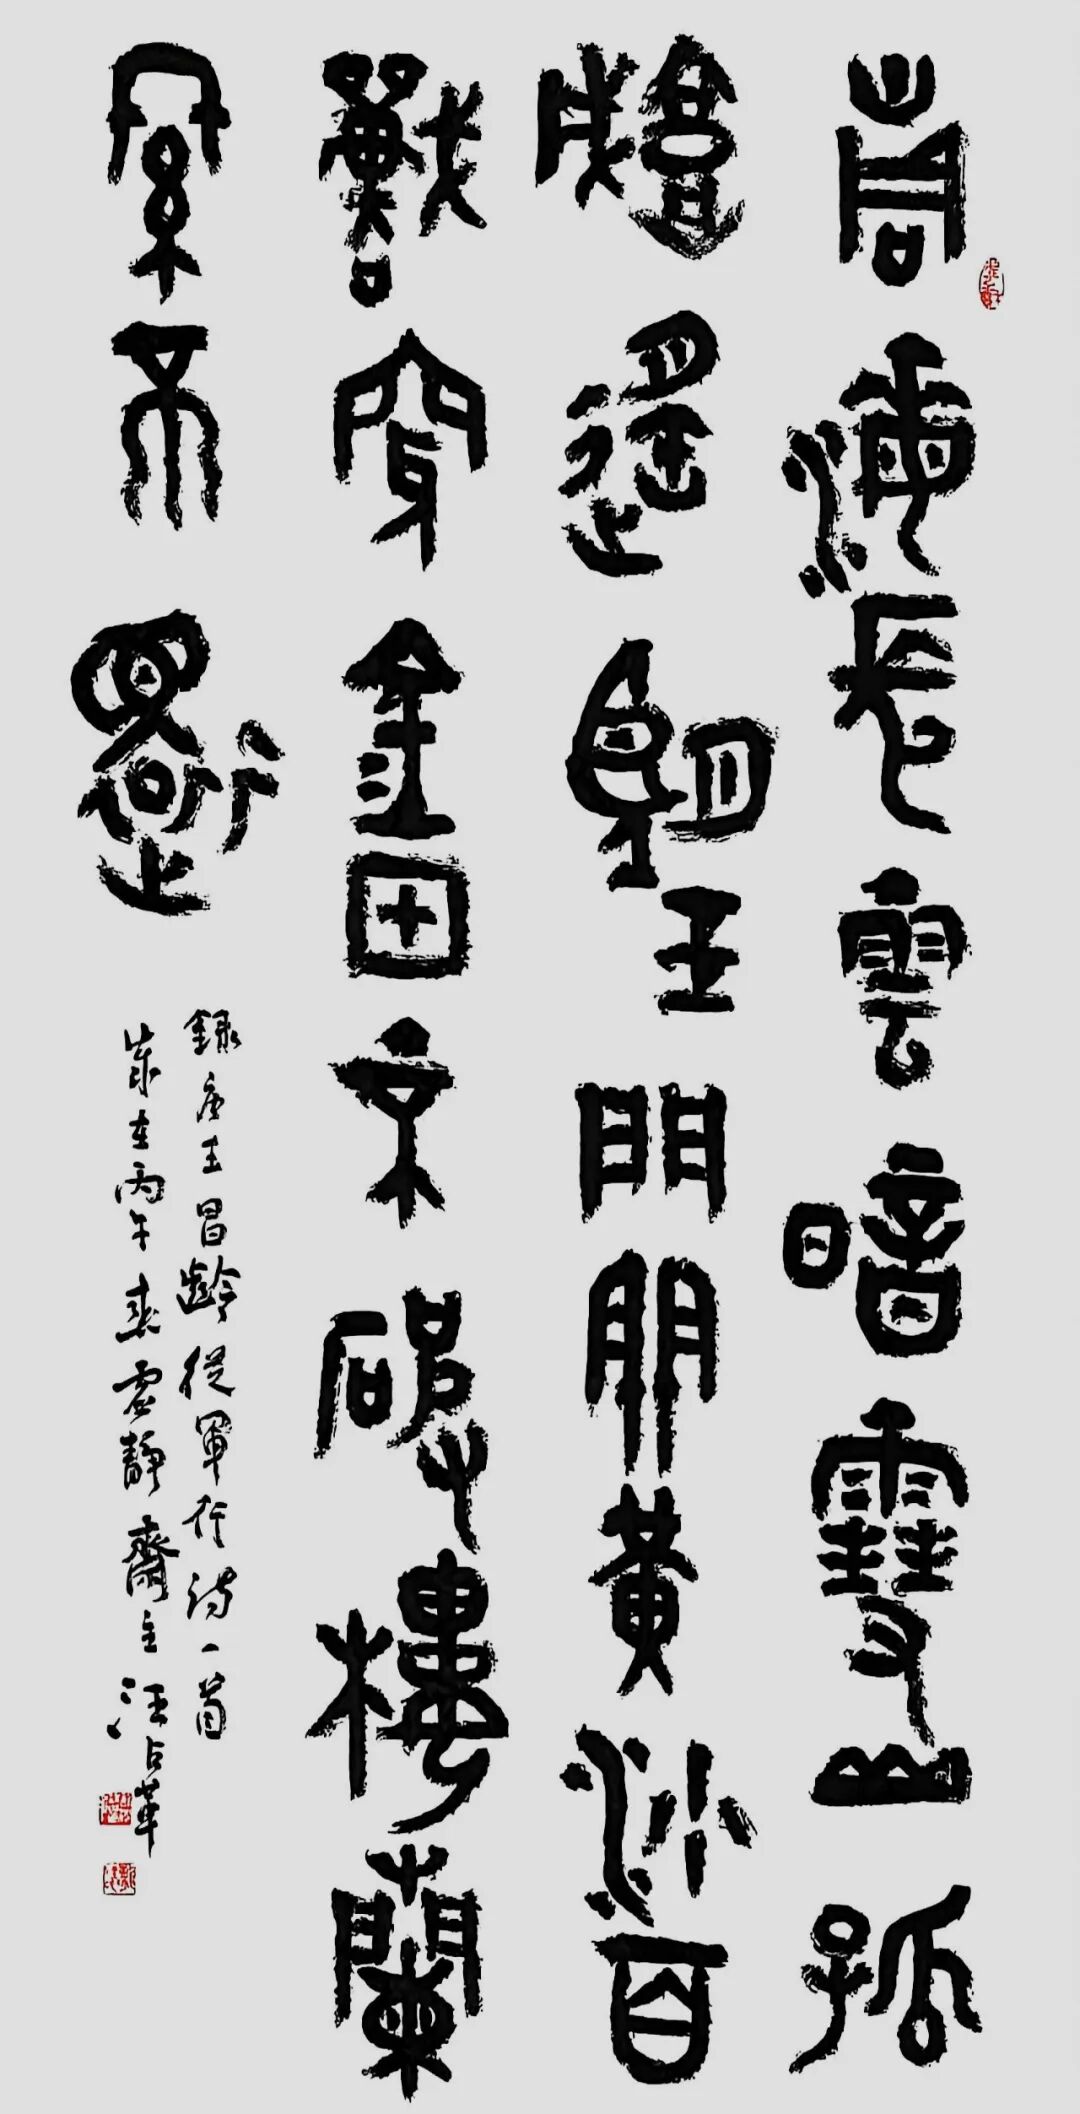 青海長雲暗雪山孤
城遙望玉門關黃沙百
戰穿金甲不破樓蘭
終不還
錄唐王昌齡從軍行詩一首
歲在丙午春虛靜齋主汪占革